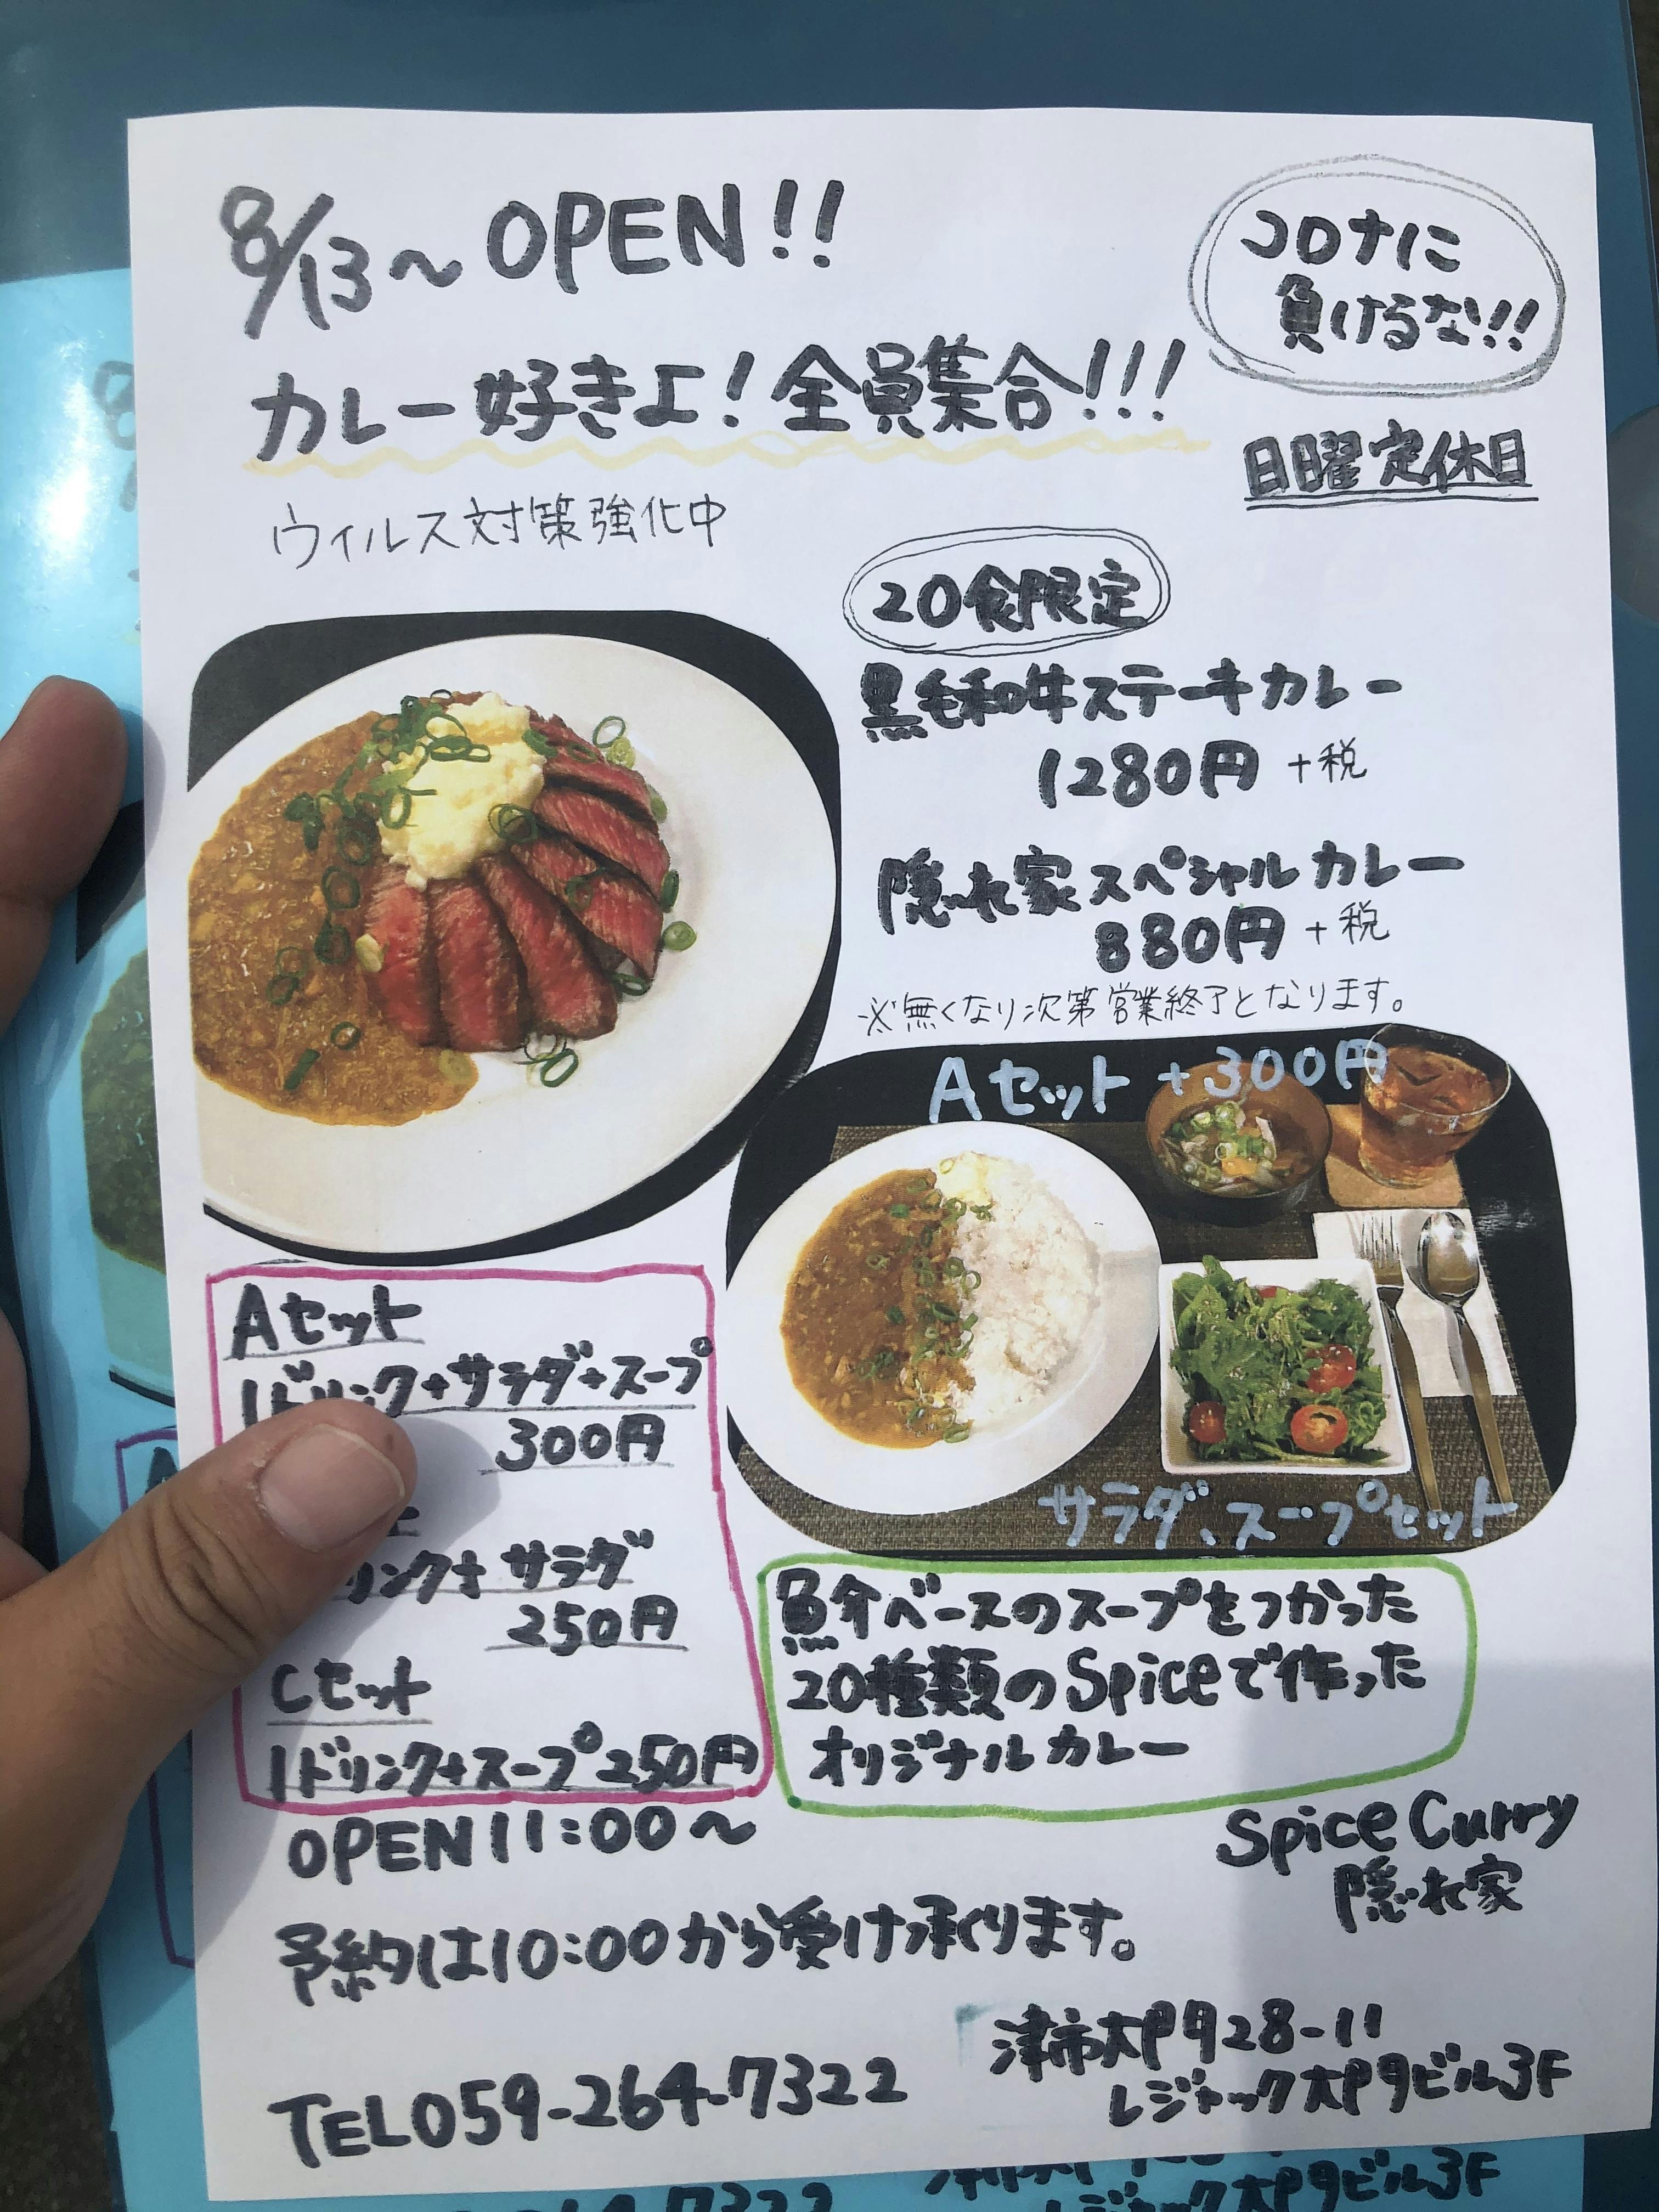 8/13～OPEN!!
コロナに
負けるな!!
カレー好きよ！全員集合!!!
日曜定休日
ウィルス対策強化中
20食限定
黒毛和牛ステーキカレー
1280円 +税
隠れ家スペシャルカレー
880円 +税
※無くなり次第営業終了となります。
Aセット +300円
サラダ、スープセット
Aセット
1ドリンク+サラダ+スープ
300円
リンク+サラダ
250円
Cセット
1ドリンク+スープ250円
魚介ベースのスープをつかった
20種類のSpiceで作った
オリジナルカレー
OPEN11:00～
Spice Curry
隠れ家
予約は10:00から受け承ります。
津市大門28-11
レジャック大門ビル3F
TEL059-264-7322
レジャック大門ビル3F